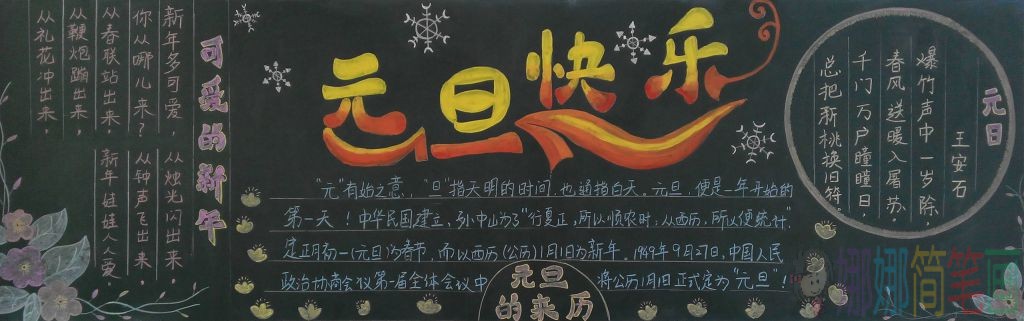 元旦快乐
可爱的新年
新年多可爱，
你从哪儿来？
从春联站出来，
从鞭炮蹦出来，
从礼花冲出来，
从烛光闪出来
从钟声飞出来
新年娃娃人人爱，
"元"有始之意，"旦"指天明的时间，也通指白天。元旦，便是一年开始的
第一天！中华民国建立，孙中山为了"行夏正，所以顺农时；从西历，所以便统计"
定正月初一(元旦)为春节，而以西历(公历)1月1日为新年。1949年9月27日，中国人民
政治协商会议第一届全体会议中 将公历1月1日正式定为"元旦"！
元旦
的来历
元日
王安石
爆竹声中一岁除，
春风送暖入屠苏
千门万户瞳瞳日，
总把新桃换旧符。
娜娜简笔画